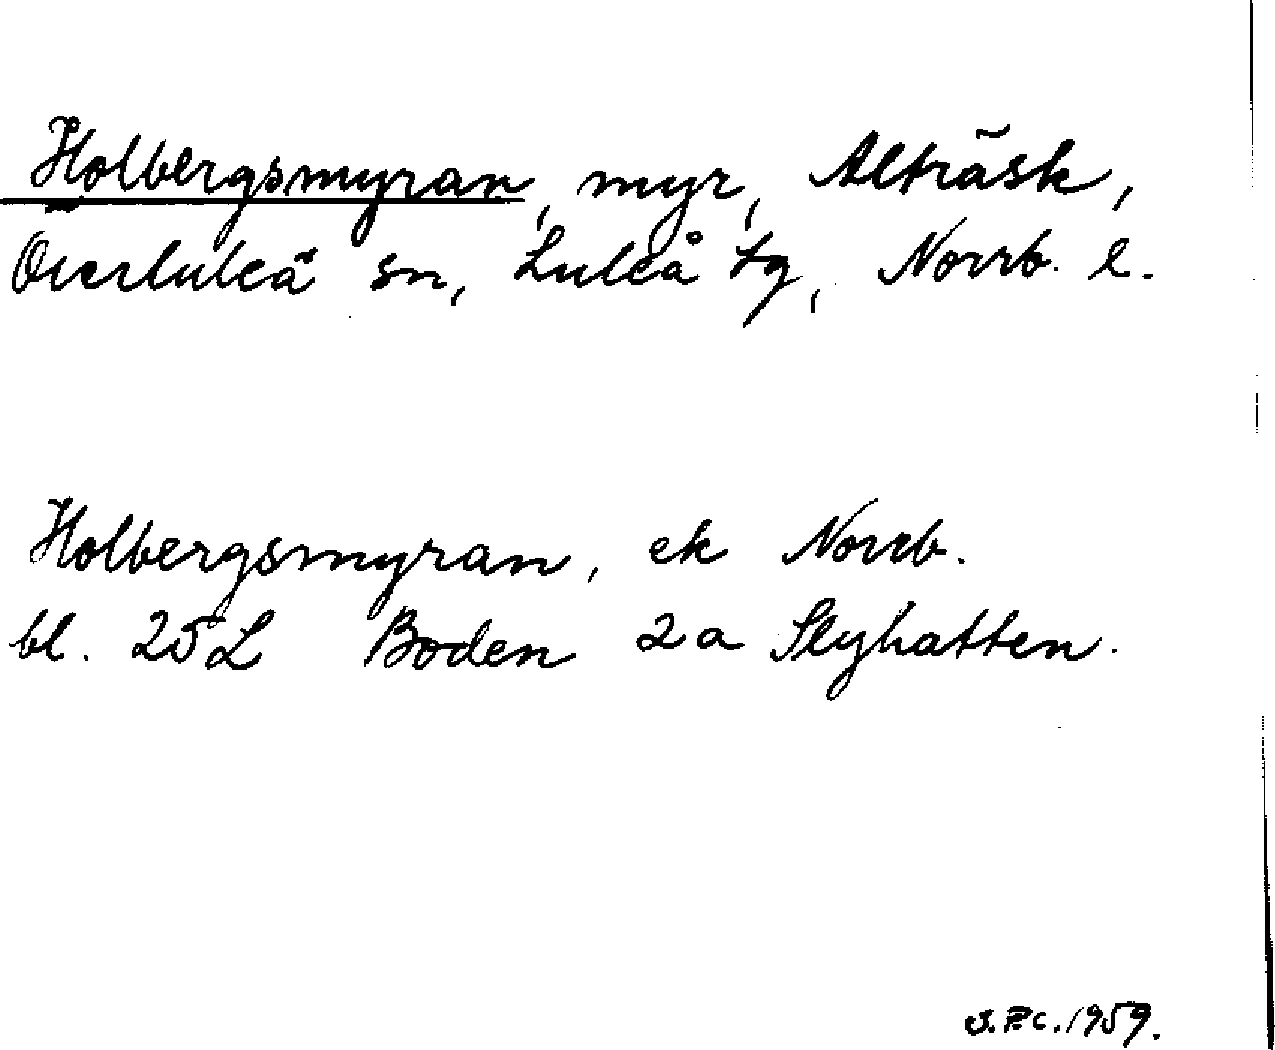 Holbergsmyran, myr, Alträsk,
Överluleå sn, Luleå tg, Norrb. l.
Holbergsmyran, ek Norrb.
bl. 25L Boden 2a Slyhatten.
1959.